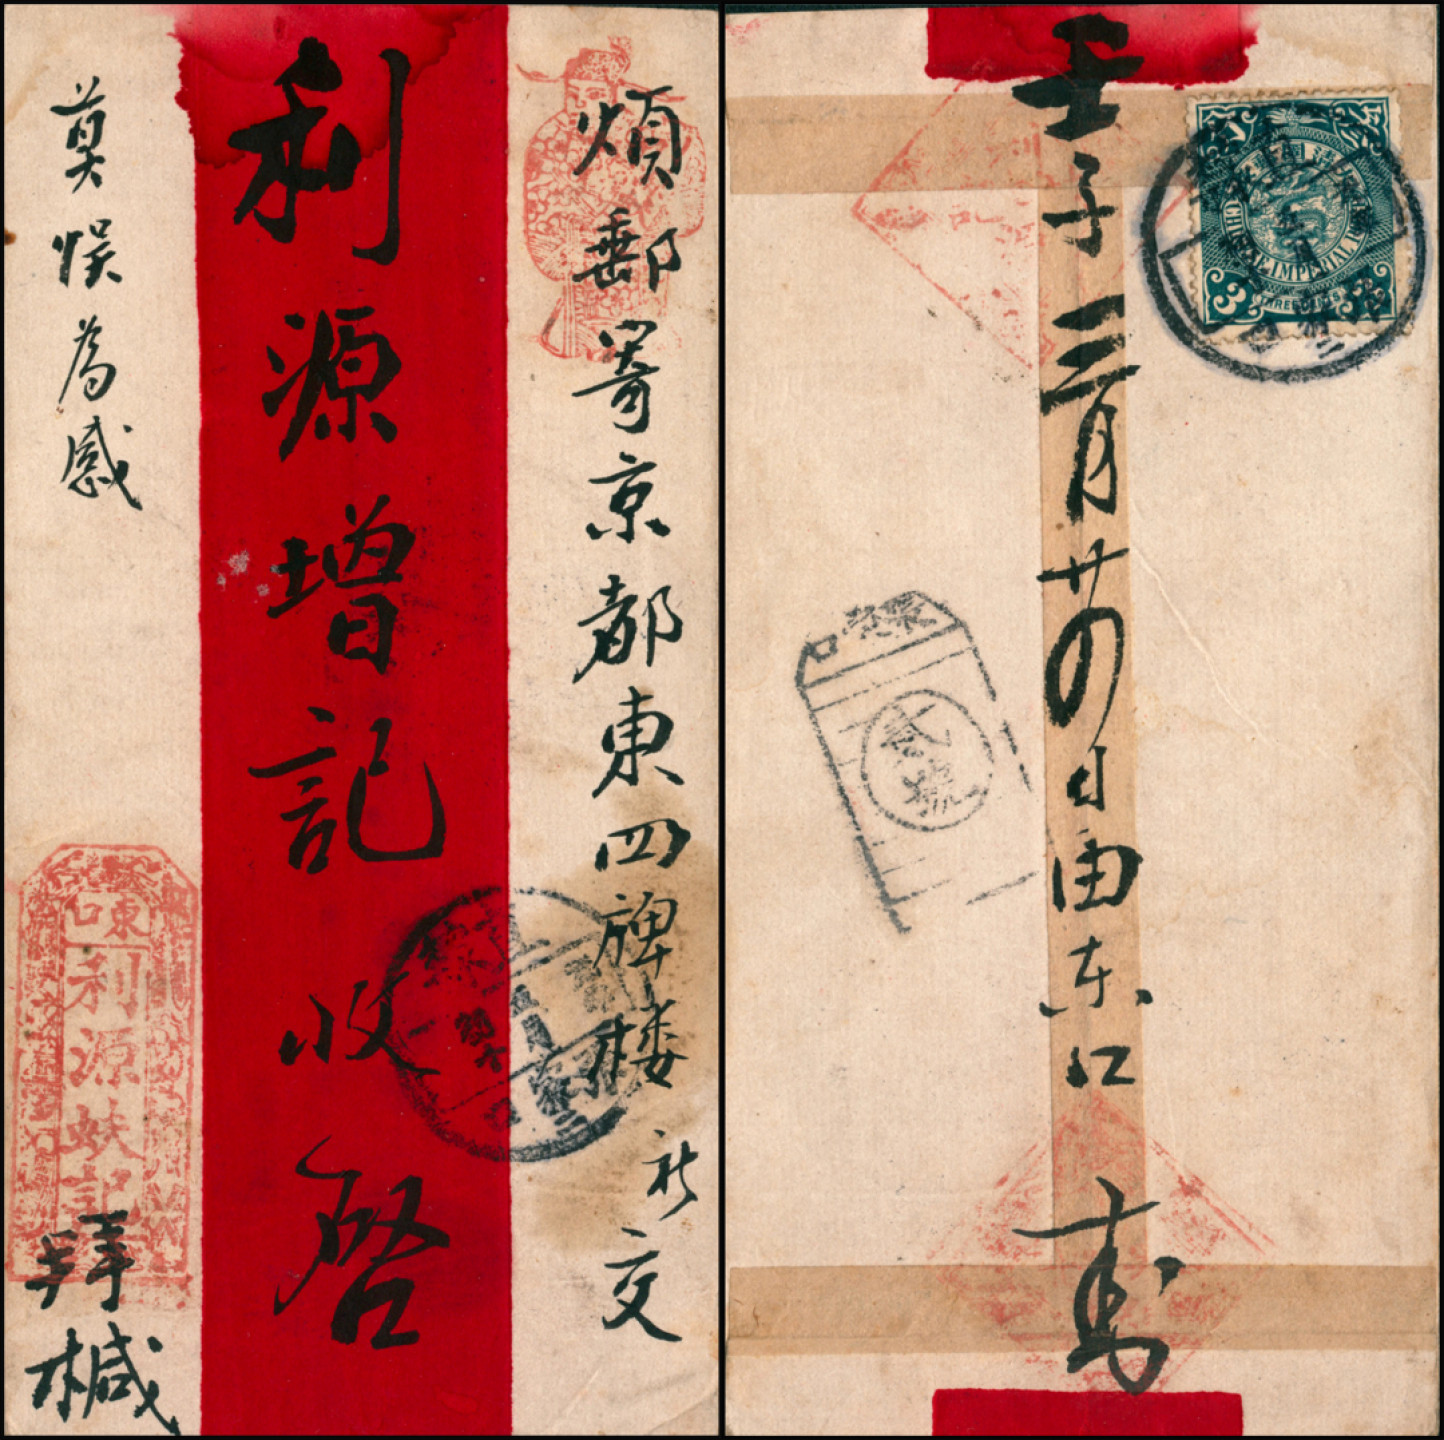 煩郵寄京都東四牌楼祈交
利源增記收啓
莫悮為感
東口
利源蚨記
拜械
壬子三月廿四日由东口寄
CHINESE IMPERIAL POST
3
3
THREE CENTS
貳號